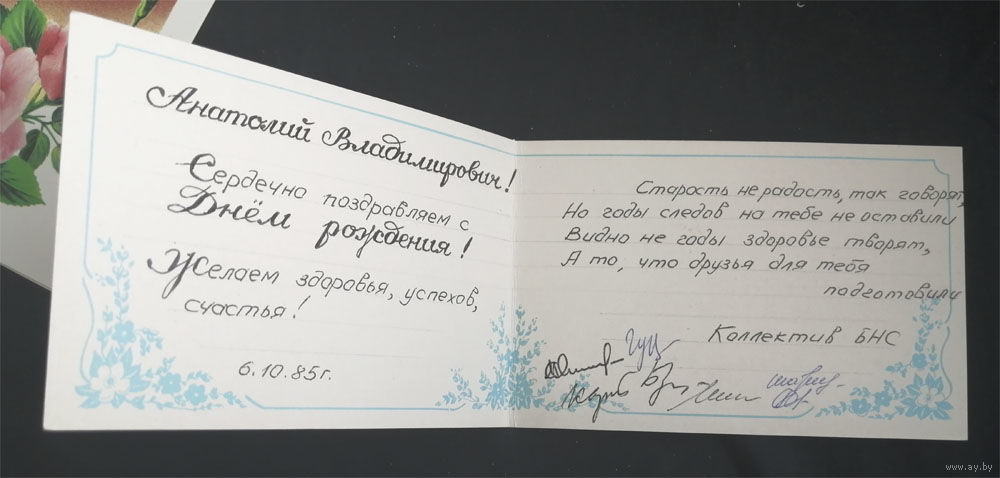 Анатолий Владимирович!
Сердечно поздравляем с
Днём рождения!
Желаем здоровья, успехов,
счастья!
6.10.85г.
Старость не радасть, так говорят,
Но годы следов на тебе не оставили
Видно не годы здоровье творят,
А то, что друзья для тебя
подготовили
Коллектив БНС
www.ay.by